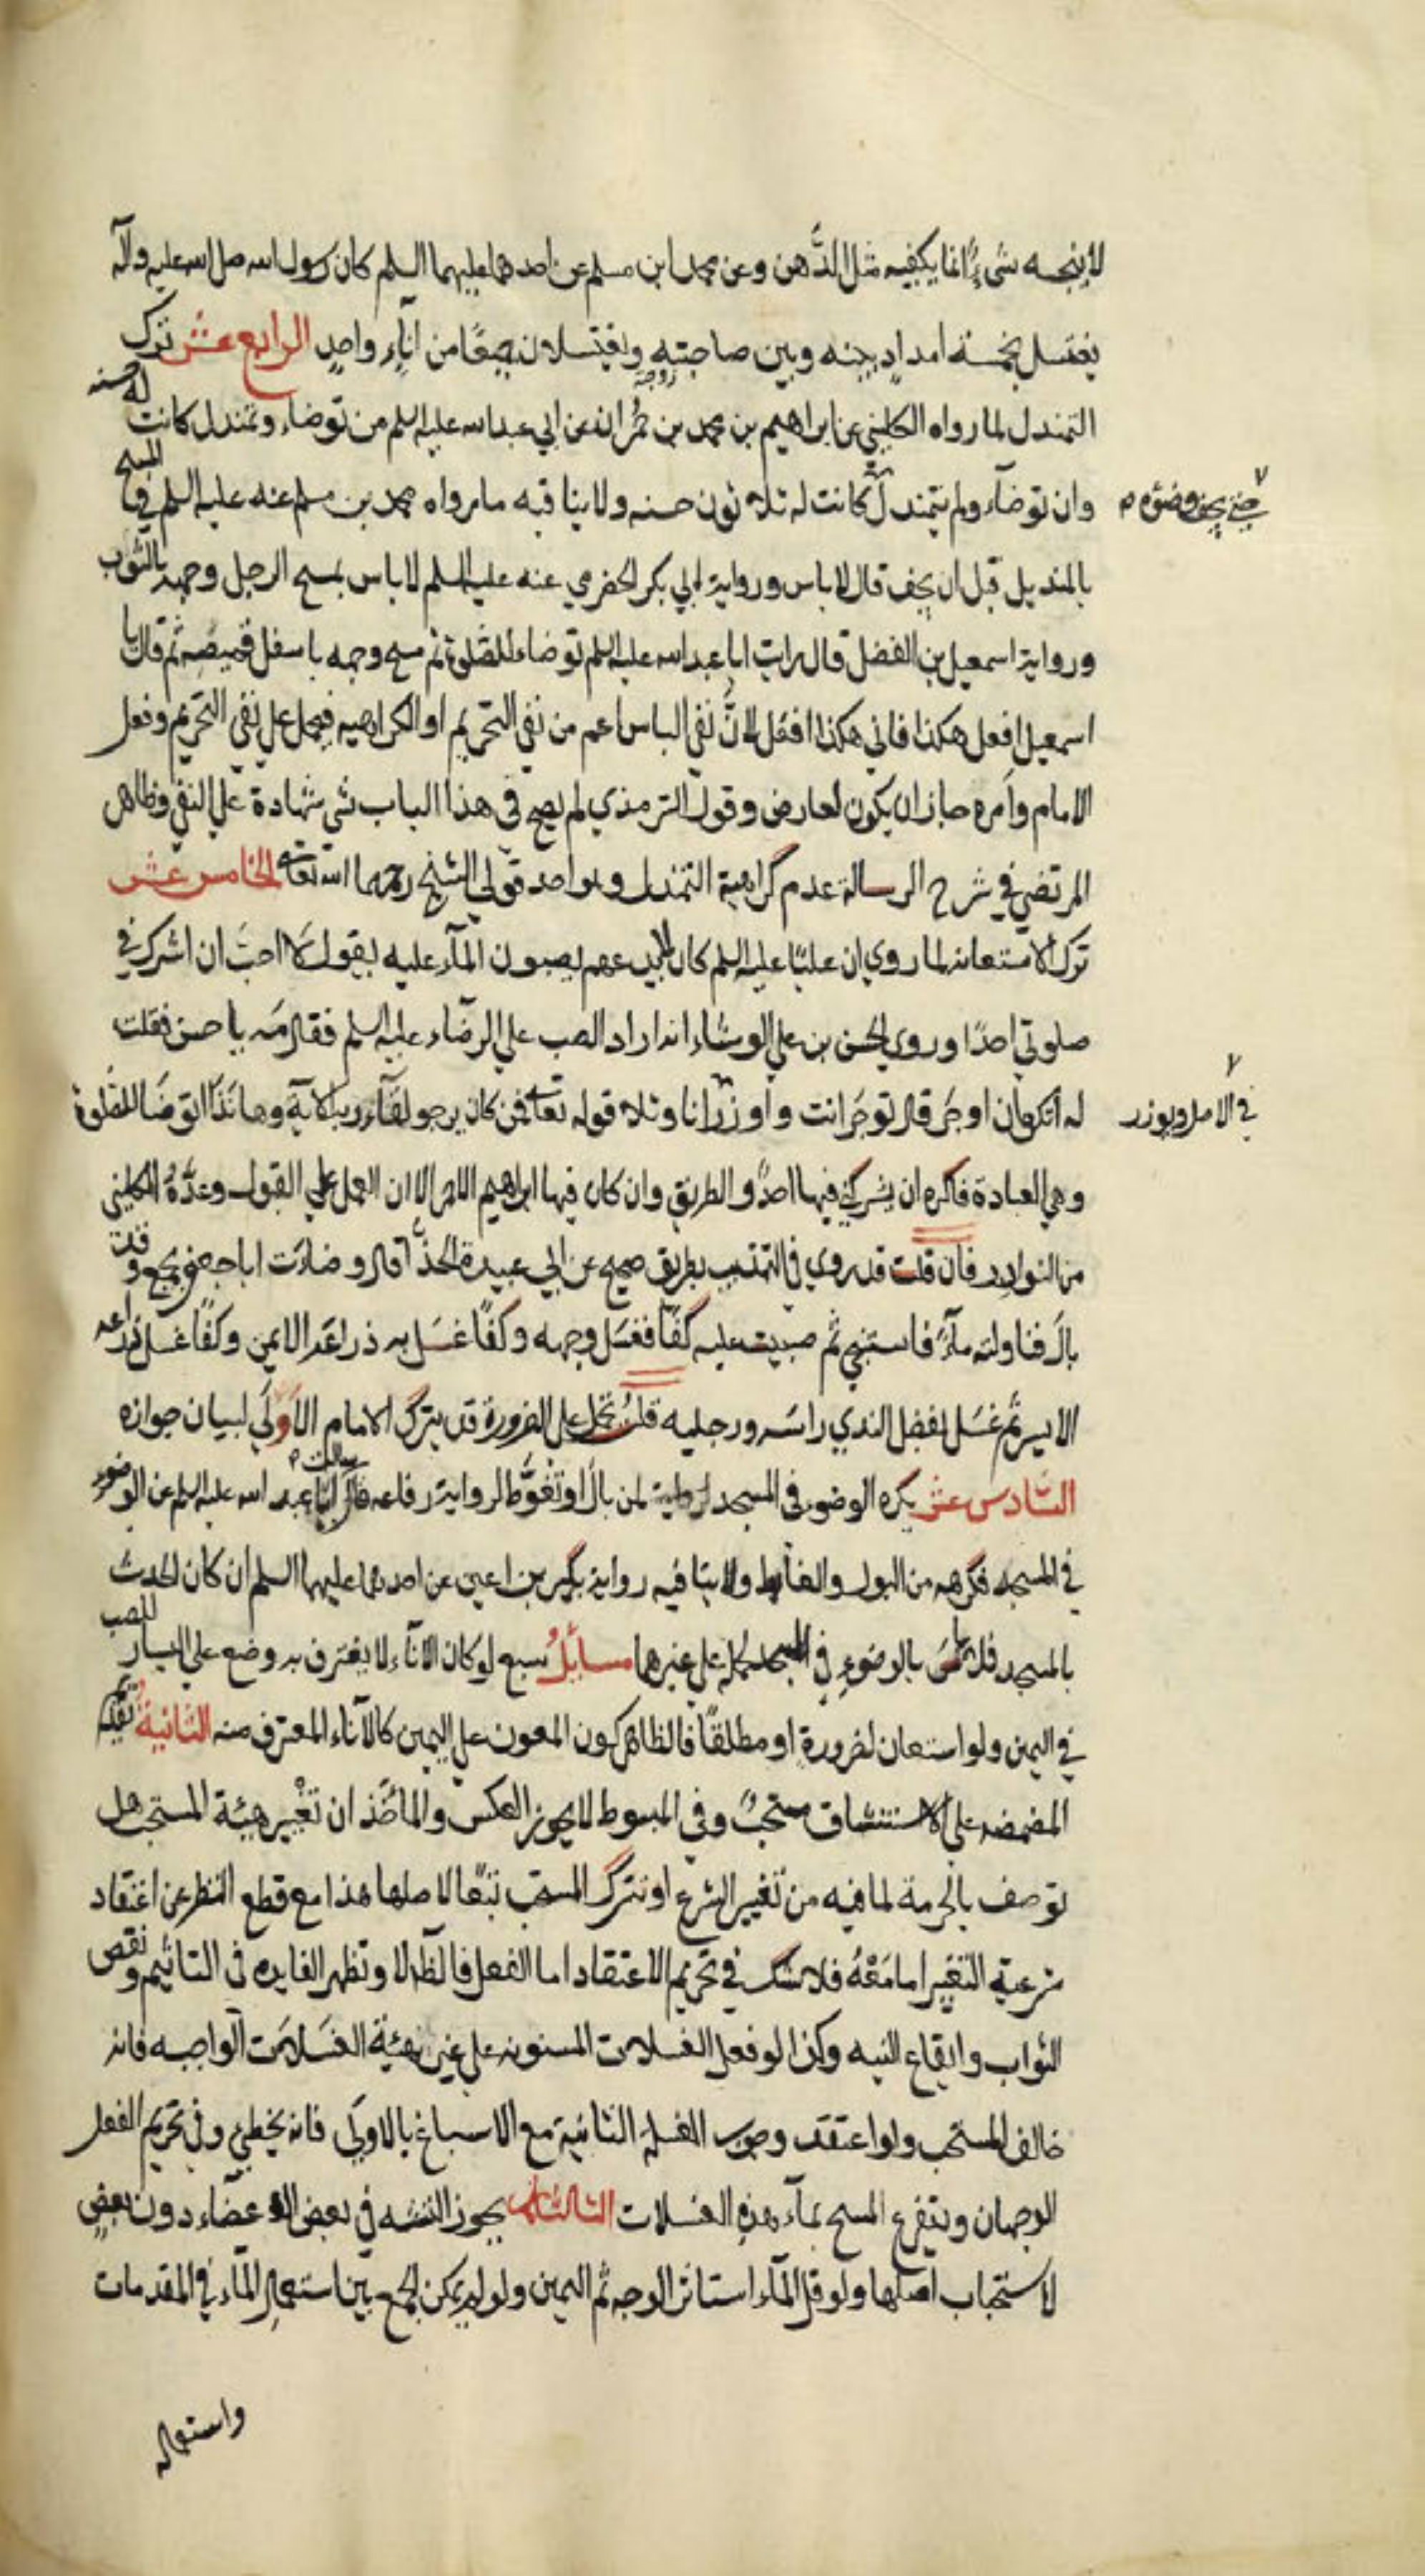 لا ينجسه شيء انما يكفيه مثل الدّهن وعن محمد ابن مسلم عن احدهما عليهما السلم كان رسول الله صلى الله عليه وآله
يغتسل بخمسة امداد بينه وبين صاحبته ويغتسلان جميعًا من اناءٍ واحدٍ الرابع عشر ترك
زوجته
التمندل لما رواه الكليني عن ابراهيم بن محمد بن حُمران عن ابي عبد الله عليه السلم من توضاء وتمندل كانت له حسنه
وان توضاء ولم يتمندل كانت له ثلاثون حسنه ولا ينافيه ما رواه محمد بن مسلم عنه عليه السلم في المسح
حتى يجف وضوءه
بالمنديل قبل ان يجف قال لا باس ورواية ابي بكر الحضرمي عنه عليه السلم لا باس بمسح الرجل وجهه بالثوب
ورواية اسمعيل بن الفضل قال رايت ابا عبد الله عليه السلم توضاء للصلوة ثم مسح وجهه باسفل قميصه ثم قال يا
اسمعيل افعل هكذا فاني هكذا افعل لانّ نفي الباس اعم من نفي التحريم او الكراهيه فيحمل على نفي التحريم وفعل
الامام وامره جاز ان يكون لعارض وقول الترمذي لم يصح في هذا الباب شي شهادة على النفي وظاهر
المرتضى في شرح الرسالة عدم كراهية التمندل وهو احد قولي الشيخ رحمهما الله تعالى الخامس عشر
ترك الاستعانه لما روي ان عليًا عليه السلم كان لا يدعهم يصبون المآء عليه يقول لا احبّ ان اشرك في
صلوتي احدًا وروى الحسن بن علي الوشاء انه اراد الصب على الرضاء عليه السلم فقال مه يا حسن فقلت
له أتكره ان اوجر قال توجر انت و اوزر انا وتلا قوله تعالى فمن كان يرجو لقاء ربه الآية وها انذا اتوضا للصلوة
في الاصل ويوزر
وهي العبادة فاكره ان يشركني فيها احدٌ والطريق وان كان فيها ابراهيم الاحمر الا ان العمل على القبول وعدّهُ الكليني
من النوادر فان قلت قد روي في التهذيب بطريق صحيح عن ابي عبيدة الحذّاء قال وضات ابا جعفر بجمع وقد
بال فناولته مآءً فاستنجى ثم صببت عليه كفًا فغسل وجهه وكفًا غسل به ذراعه الايمن وكفًا غسل به ذراعه
الايسر ثم غسل بفضل الندي راسه ورجليه قلتُ يحمل على الضرورة قد يترك الامام الاَولى لبيان جوازه
السّادس عشر يكره الوضوء في المسجد لمن بال او تغوّط لرواية رفاعه قال سالت ابا عبد الله عليه السلم عن الوضوء
في المسجد فكرهه من البول والغايط ولا ينافيه رواية بكير بن اعين عن احدهما عليهما السلم ان كان الحدث
بالمسجد فلا باس بالوضوء في المسجد لحمله على غيرهما مسائلُ سبع لو كان الاناء لا يغترف به وضع على اليسار للصب
في اليمين ولو استعان لضرورة او مطلقًا فالظاهر كون المعون على اليمين كالاناء المعترف منه الثانيةُ تقديم
المضمضه على الاستنشاق مستحبٌ وفي المبسوط لا يجوز العكس والماخذ ان تغيير هيئة المستحب هل
توصف بالحرمة لما فيه من تغيير الشرع او تترك المستحب تبعًا لاصلها هذا مع قطع النظر عن اعتقاد
شرعية التغيير اما مَعَهُ فلا شك في تحريم الاعتقاد اما الفعل فالظ لا وتظهر الفايده في التاثيم ونقص
الثواب وايقاع النيه وكذا لو فعل الغسلات المسنونه على غير هيئة الغسلات الواجبه فانه
خالف المستحب ولو اعتقد وجوب الغسله الثانية مع الاسباغ بالاولى فانه يخطي وفي تحريم الفعل
الوجهان ويتفرع المسح بمآء هذه الغسلات الثالثة يجوز التثنيه في بعض الاعضاء دون بعضٍ
لاستحباب اصلها ولو قل المآء استاثر الوجه ثم اليمين ولو لم يمكن الجمع بين استعمال الماء في المقدمات
واستعماله